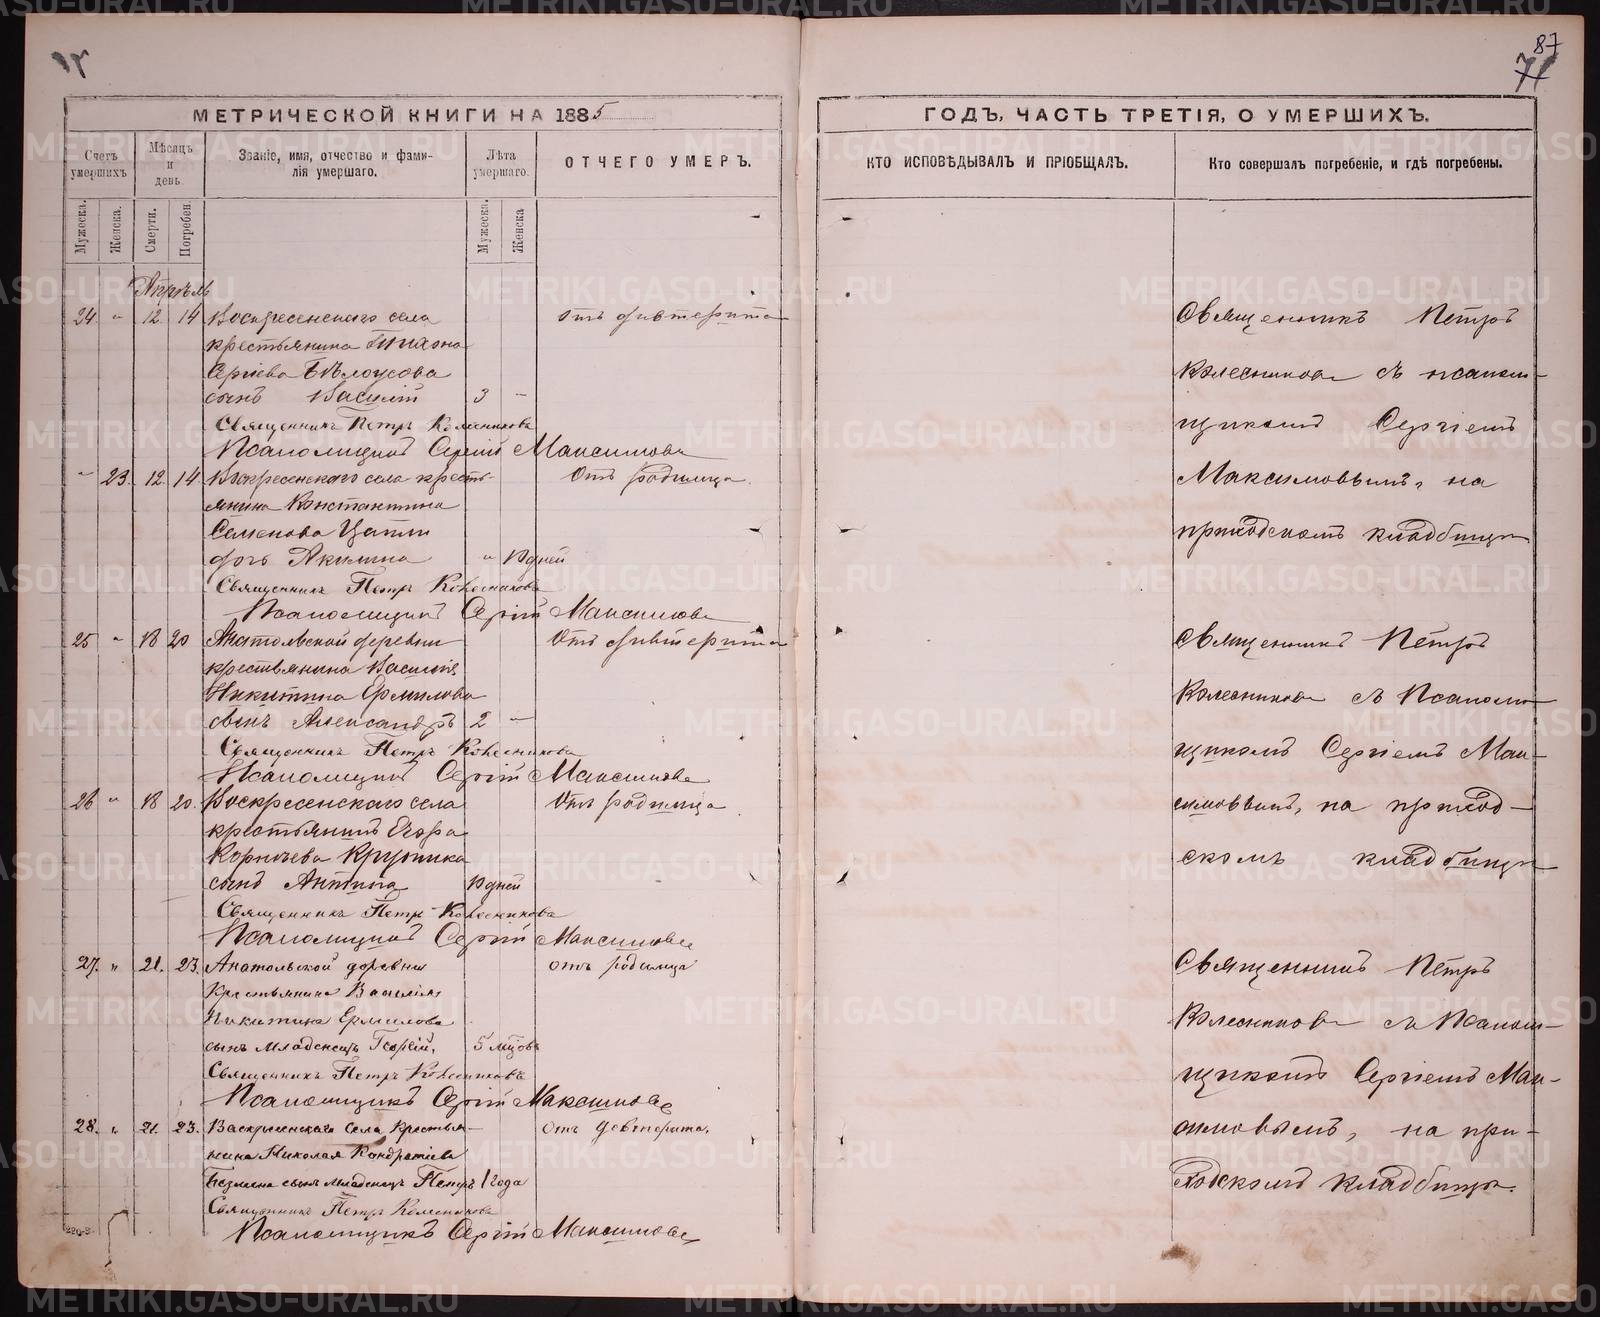 87
71
МЕТРИЧЕСКОЙ КНИГИ НА 1885
ГОДЪ, ЧАСТЬ ТРЕТІЯ, О УМЕРШИХЪ.
Счетъ умершихъ.
Мѣсяцъ и день.
Званіе, имя, отчество и фами-
лія умершаго.
Лѣта умершаго.
ОТЧЕГО УМЕРЪ.
КТО ИСПОВѢДЫВАЛЪ И ПРІОБЩАЛЪ.
Кто совершалъ погребеніе, и гдѣ погребены.
Мужеска. Женска. Смерти. Погребен
Мужеска. Женска
Апрѣль
24. " 12. 14 Воскресенскаго села отъ дивтерита
крестьянина Тихона
Сергіева Бѣлоусова
сынъ Василій 3 -
Священникъ Петръ Колесниковъ
Псаломщикъ Сергій Максимовъ
" 23. 12. 14. Воскресенскаго села кресть- Отъ родимца.
янина Константина
Семенова
дочь Акилина " 10 дней
Священникъ Петръ Колесниковъ
Псаломщикъ Сергій Максимовъ
25 " 18 20 Анатольской деревни Отъ дивтерита
крестьянина Василія
Никитина Ермилова
сынъ Александръ 2 -
Священникъ Петръ Колесниковъ
Псаломщикъ Сергій Максимовъ
26 " 18 20. Воскресенскаго села Отъ родимца
крестьянинъ Егора
Корнѣева
сынъ Антипа 10 дней
Священникъ Петръ Колесниковъ
Псаломщикъ Сергій Максимовъ
27. " 21. 23. Анатольской деревни отъ родимца
Крестьянина Василія
Никитина Ермилова
сынъ младенецъ Георгій, 5 мцовъ
Священникъ Петръ Колесниковъ
Псаломщикъ Сергій Максимовъ
28. " 21. 23. Васкресенскаго Села Крестья- отъ девтерита.
нина Николая Кондратіева
сынъ младенецъ Петръ 1 года
Священникъ Петръ Колесниковъ
Псаломщикъ Сергій Максимовъ
Священникъ Петръ
Колесниковъ съ псалом-
щикомъ Сергіемъ
Максимовымъ, на
приходскомъ кладбищѣ
Священникъ Петръ
Колесниковъ съ Псалом-
щикомъ Сергіемъ Мак-
симовымъ, на приход-
скомъ кладбищѣ
Священникъ Петръ
Колесниковъ съ Псалом-
щикомъ Сергіемъ Мак-
симовымъ, на при-
ходскомъ кладбищѣ.
METRIKI.GASO-URAL.RU